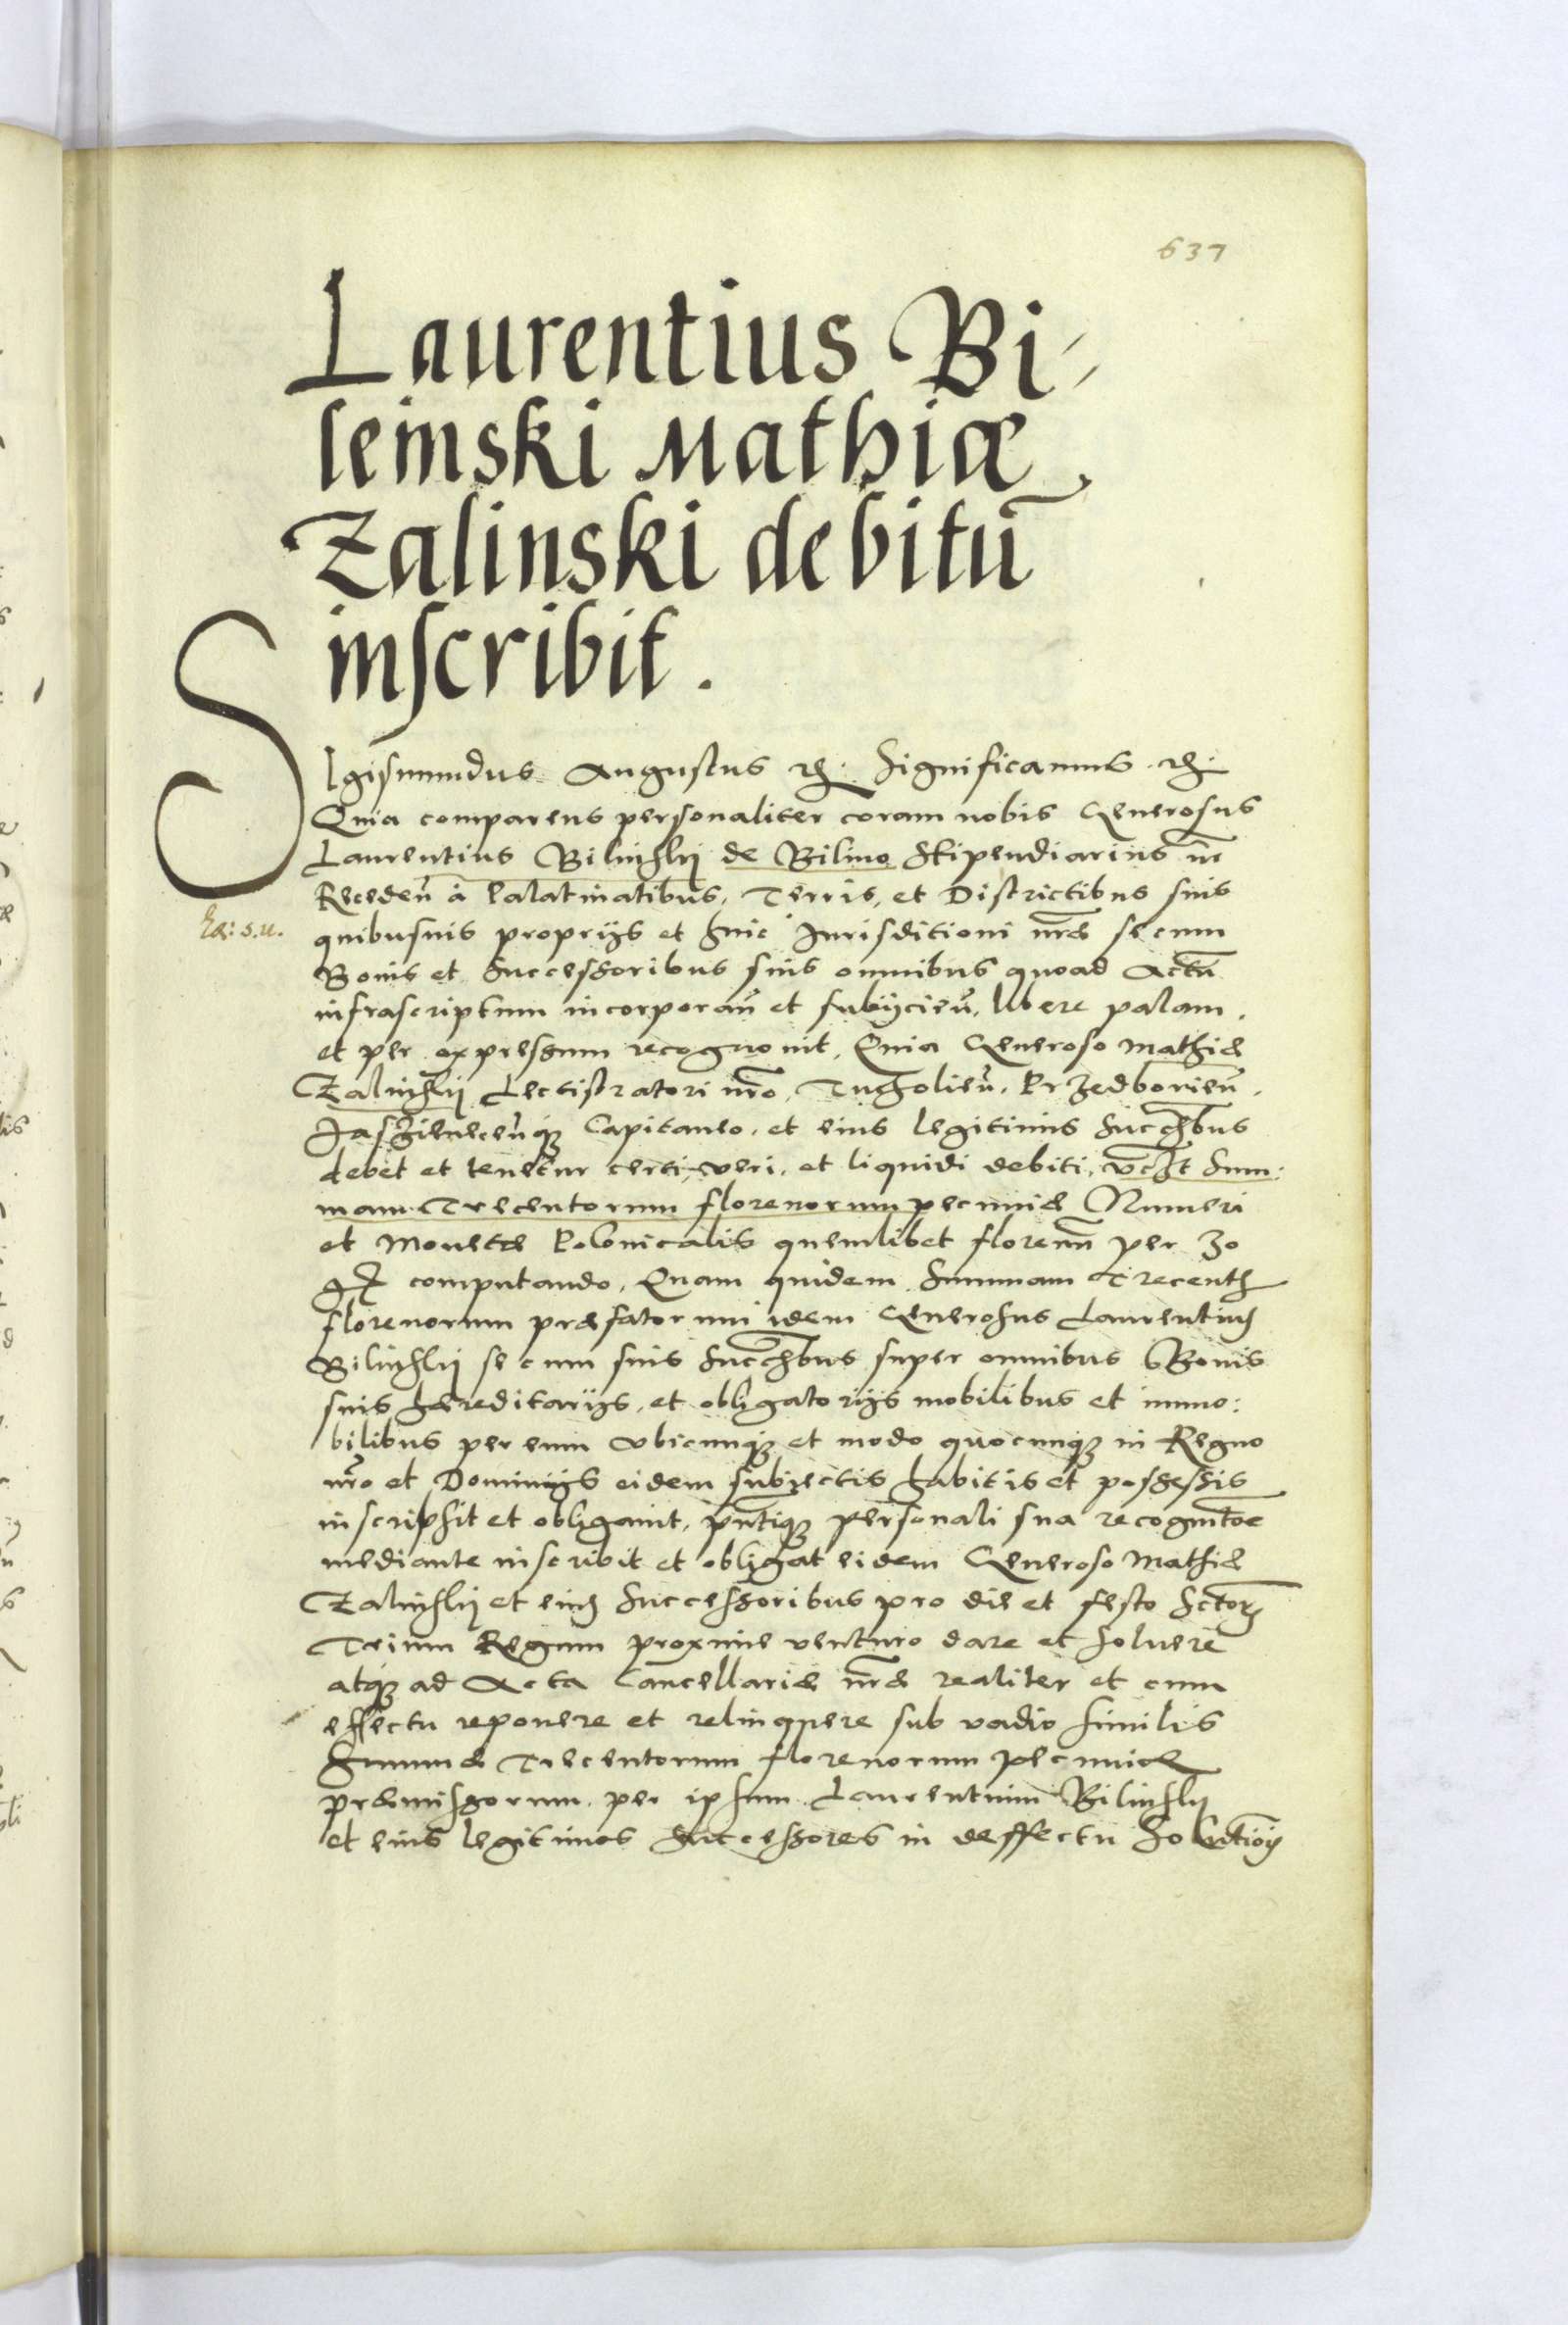 637
Laurentius Bi-
leinski Mathiæ
Zalinski debitū
inscribit.
SIgismundus Augustus etc. Significamus etc.
Quia comparens personaliter coram nobis Generosus
Laurentius Bilinskij de Bilino Stipendiarius nr̄
Receden̄ à Palatinatibus, Terris, et Districtibus suis
quibusuis proprijs et huic Jurisditioni nr̄æ se cum
Bonis et Successoribus suis omnibus quoad Actū
infrascriptum incorporan̄ et subijcien̄, libere palam,
et per expressum recognouit, Quia Generoso Mathiæ
Zalinskij Lectistratori nr̄o, Tucholien̄, Przedborien̄,
Capitaneo, et eius legitimis Succ̄bus
debet et tenetur certi, veri, et liquidi debiti, vc̄ꝫt Sum:
mam Trecentorum florenorum pecuniæ Numeri
et Monetæ Polonicalis quemlibet florenū per 30
computando, Quam quidem Summam Trecentorum
florenorum præfatorum idem Generosus Laurentius
Bilinskij se cum suis Succ̄bus super omnibus Bonis
suis hæreditarijs, et obligatorijs mobilibus et immo:
bilibus per eum vbicunqꝫ et modo quocunqꝫ in Regno
nr̄o et Dominijs eidem subiectis habitis et possessis
inscripsit et obligauit, pn̄tiqꝫ personali sua recognit̄oe
mediante inscribit et obligat eidem Generoso Mathiæ
Zalinskij et eius Successoribus pro die et festo Sctor̄
Trium Regum proxime venturo dare et soluere
atqꝫ ad Acta Cancellariæ nr̄æ realiter et cum
effectu reponere et relinquere sub vadio similis
Summæ Trecentorum florenorum pecuniæ
præmissorum per ipsum Laurentium Bilinskij
et eius legitimos Successores in deffectu Solutiōis